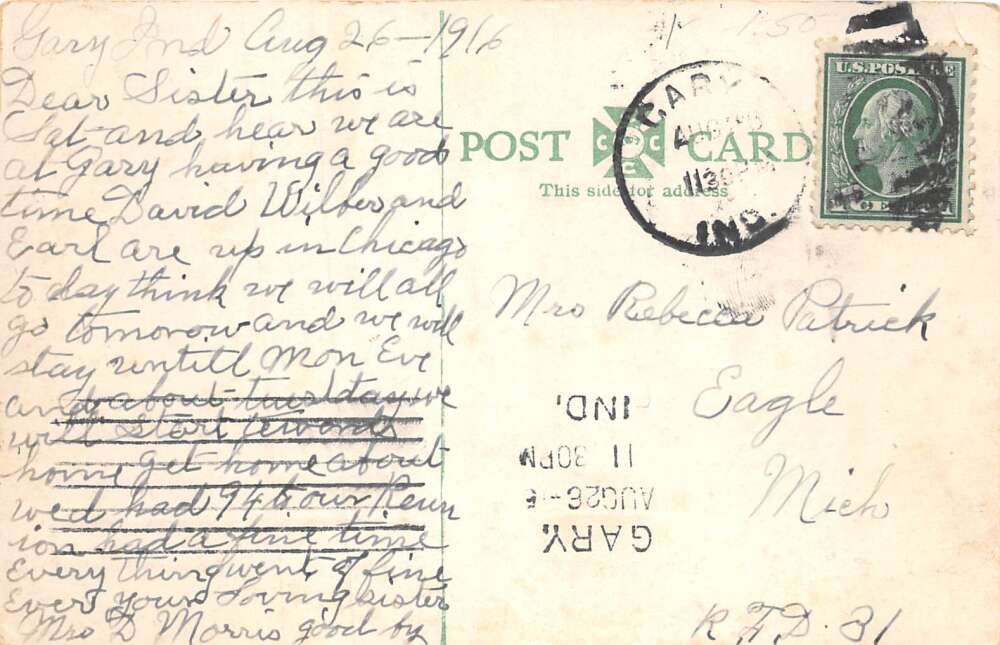 Gary Ind Aug 26-1916
Dear Sister this is
Sat and hear we are
at Gary having a good
time David Wilber and
Earl are up in Chicago
to day think we will all
go tomorow and we will
stay untill Mon Eve
and about tuesday we
will start towards
home get home about
wed had 94 to our Reun
ion had a fine time
Every thing went of fine
Ever your Loving sister
Mrs D Morris good by
1.50
U.S. POSTAGE
POST CARD
This side for address
GARY
AUG 26
1130 PM
IND.
Mrs Rebecca Patrick
Eagle
Mich
R F D. 31
GARY,
AUG 26
11 30PM
IND.